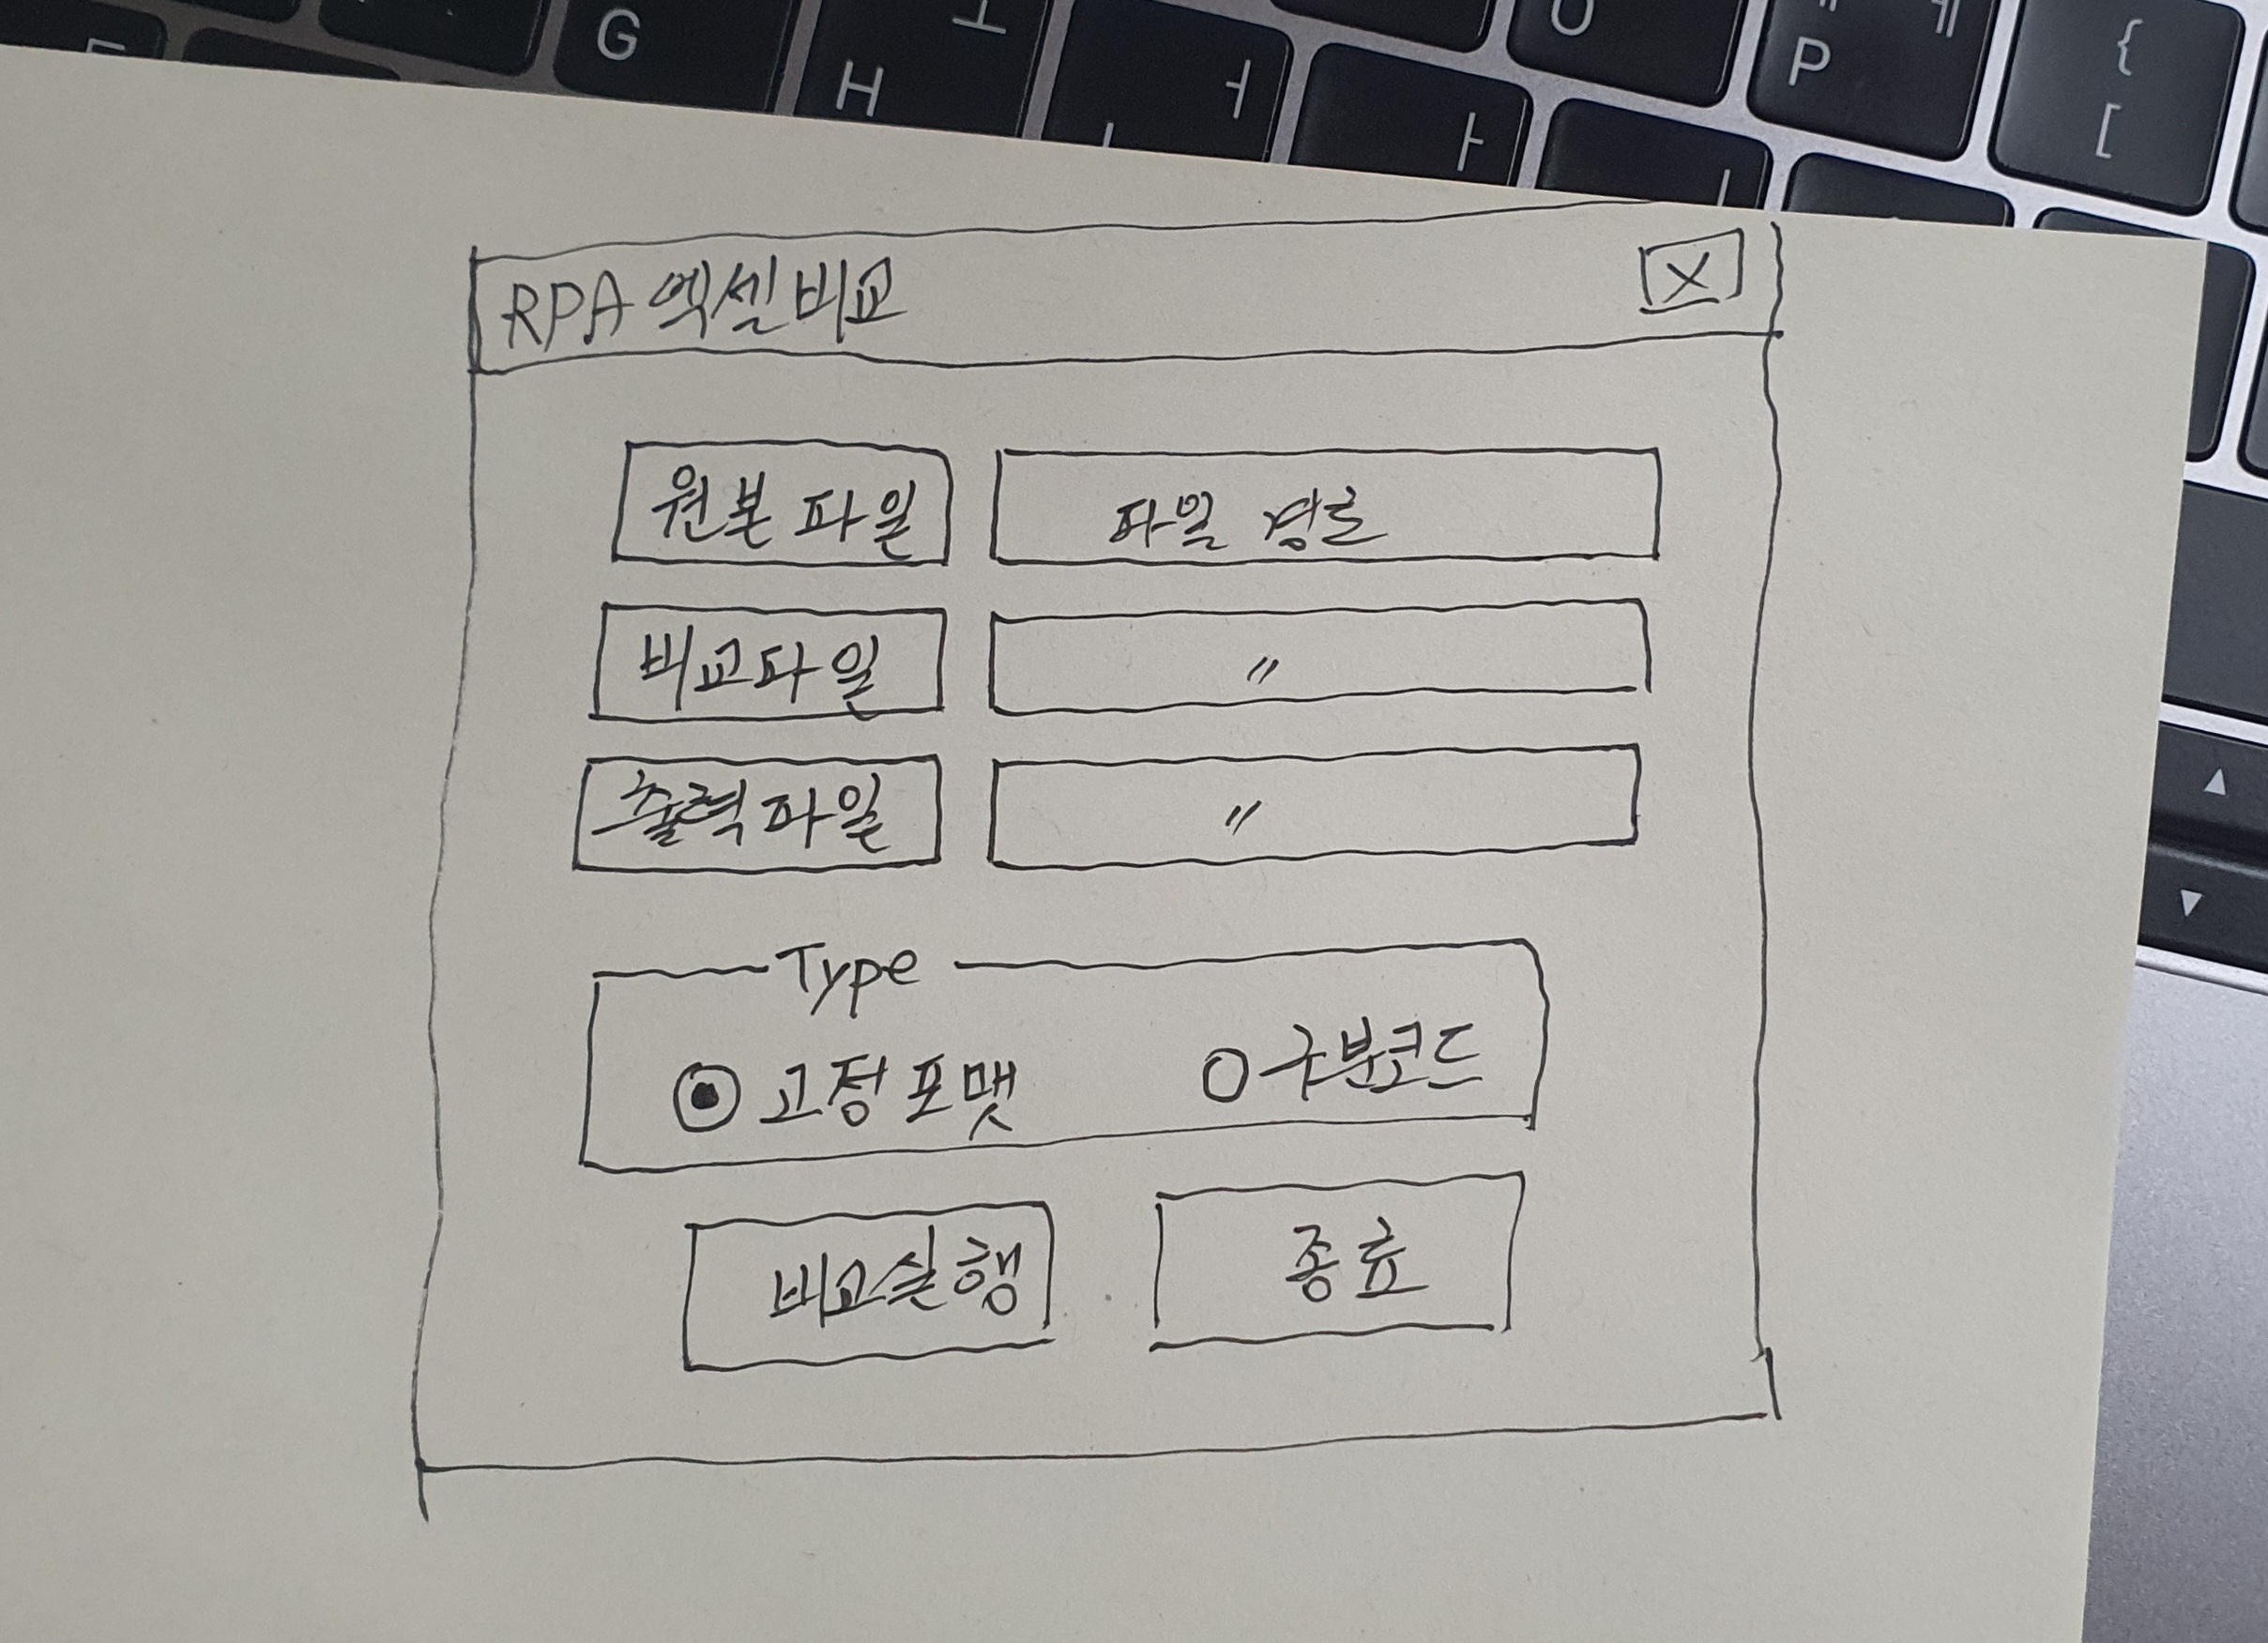 G
H
ㅗ
ㅓ
ㅏ
ㅣ
O
P
ㅔ
{
[
RPA 엑셀비교
X
원본 파일
파일 경로
비교파일
〃
출력파일
〃
Type
고정 포맷
구분코드
비교실행
종료